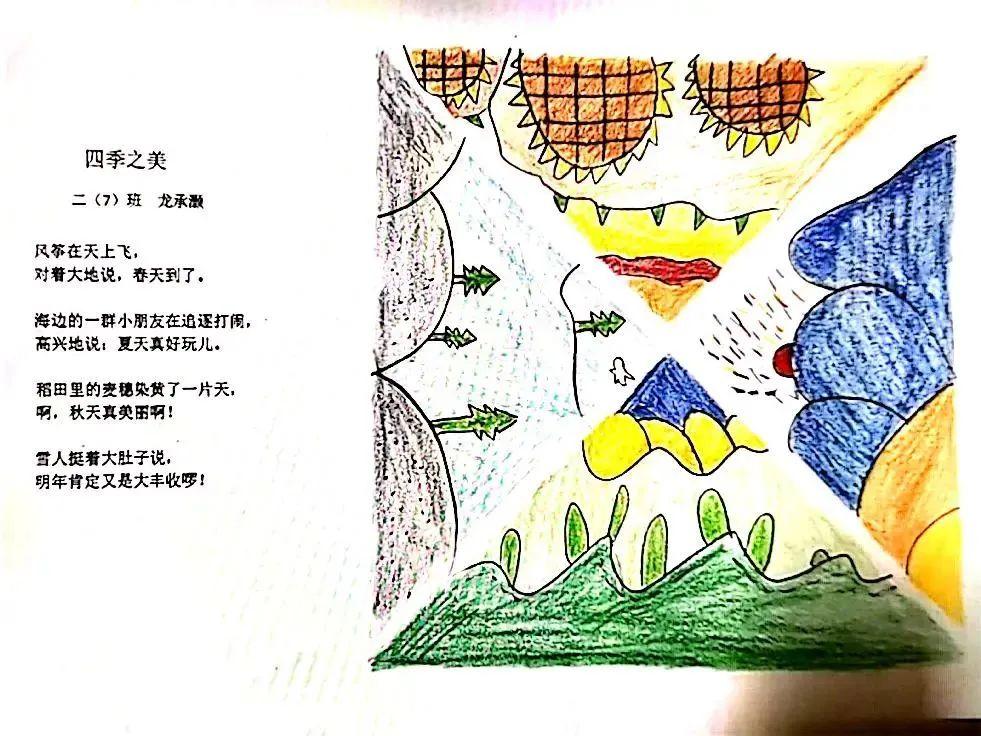 四季之美
二（7）班　龙承灏
风筝在天上飞，
对着大地说，春天到了。
海边的一群小朋友在追逐打闹，
高兴地说：夏天真好玩儿。
稻田里的麦穗染黄了一片天，
啊，秋天真美丽啊！
雪人挺着大肚子说，
明年肯定又是大丰收啰！